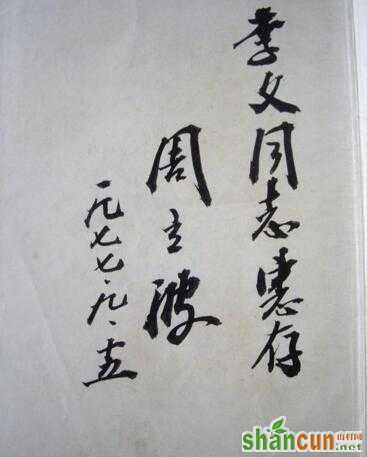 李文同志惠存
周立波
一九七七.九.十五
shancun
山村网
.net